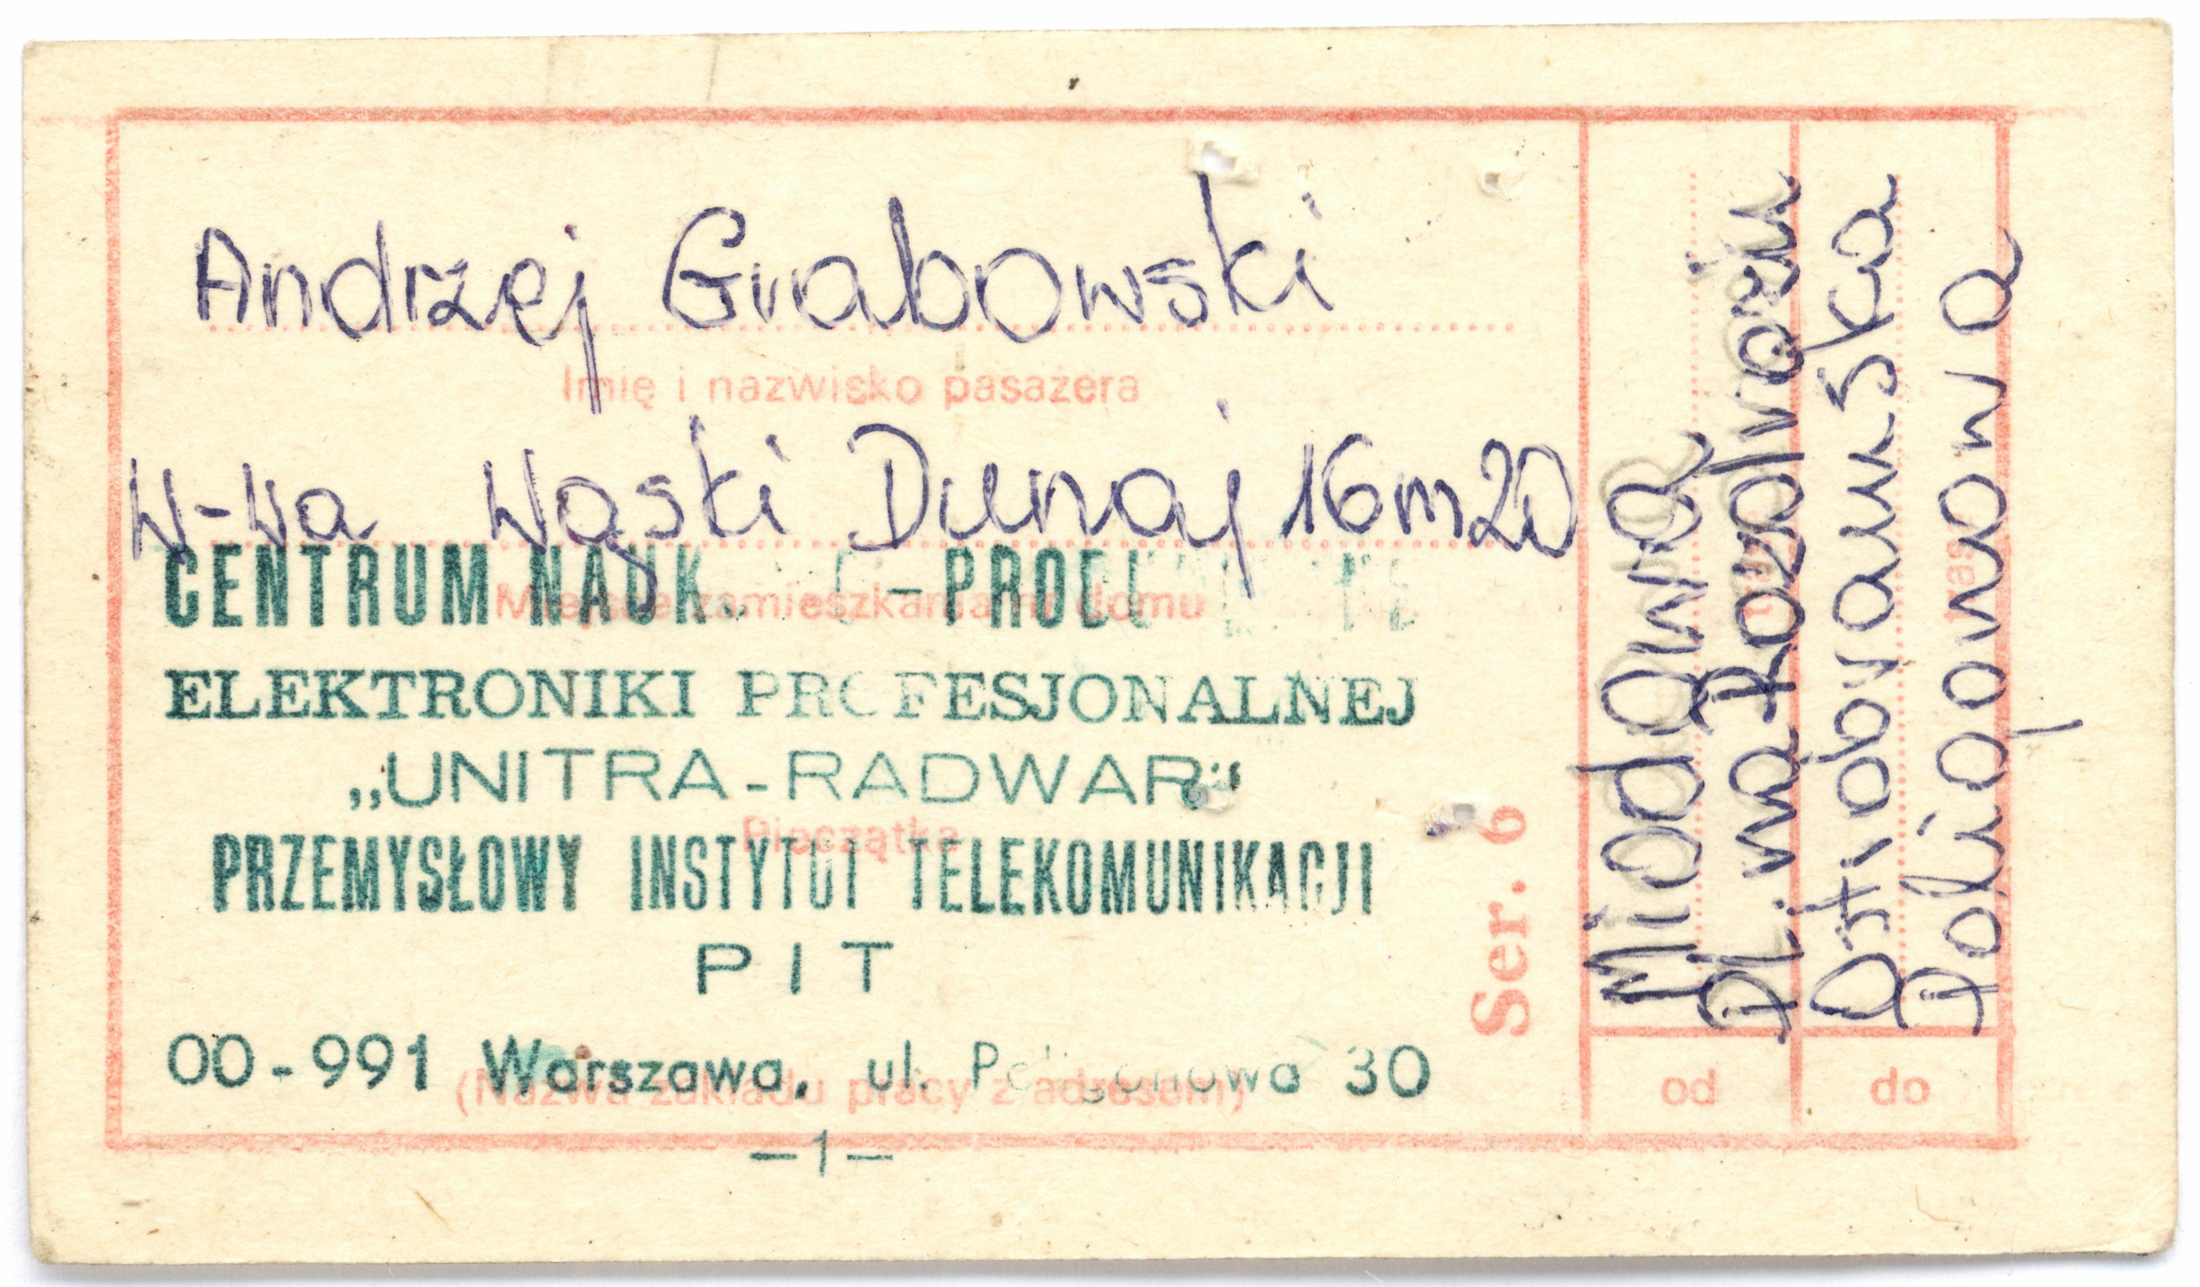 Andrzej Grabowski
Imię i nazwisko pasażera
W-wa Wąski Dunaj 16 m 20
Miejsce zamieszkania nr domu
CENTRUM NAUK. -
ELEKTRONIKI PROFESJONALNEJ
„UNITRA-RADWAR"
Pieczątka
PRZEMYSŁOWY INSTYTUT TELEKOMUNIKACJI
PIT
00-991 Warszawa, ul. Poligonowa 30
(Nazwa zakładu pracy z adresem)
-1-
Ser. 6
Miodowa
Pl. na Rozdrożu
od
Ostrobramska
Poligonowa
do